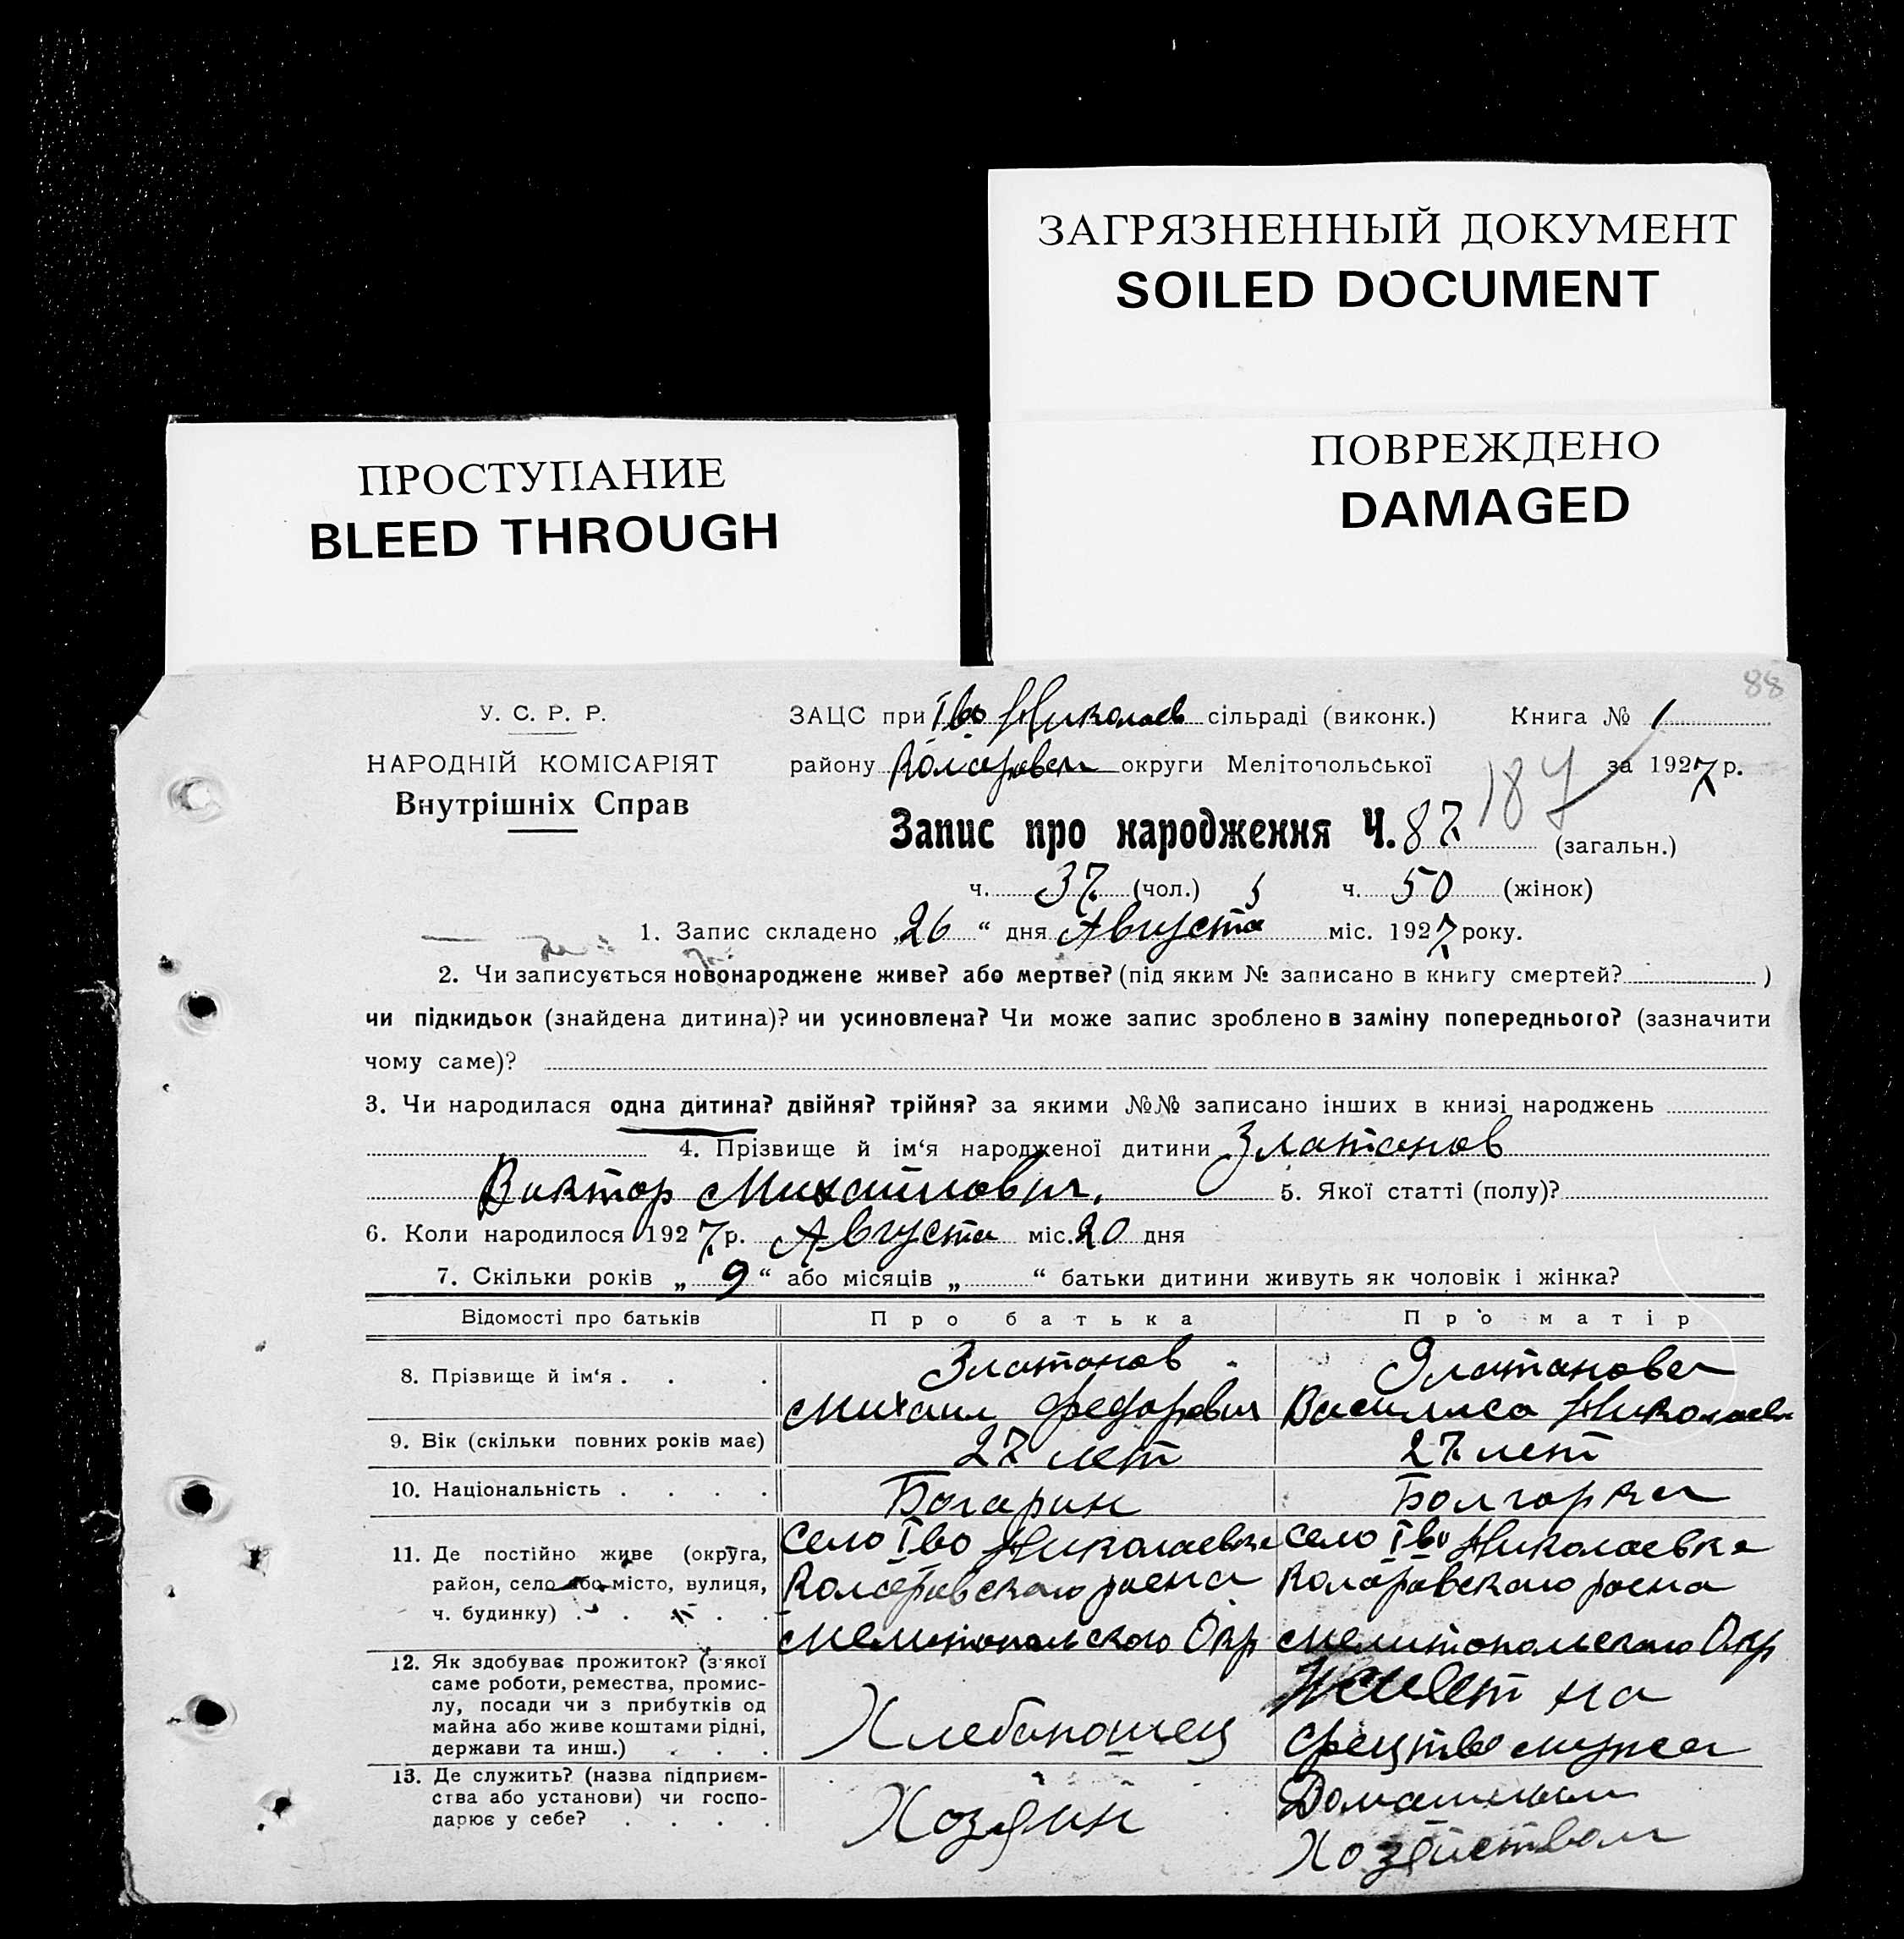 ЗАГРЯЗНЕННЫЙ ДОКУМЕНТ
SOILED DOCUMENT
ПОВРЕЖДЕНО
DAMAGED
ПРОСТУПАНИЕ
BLEED THROUGH
88
У. С. Р. Р.
НАРОДНІЙ КОМІСАРІЯТ
Внутрішніх Справ
ЗАЦС при Іво Николаев сільраді (виконк.) Книга № 1
району Коларовск округи Мелітопольської за 1927 р.
187
Запис про народження Ч. 87 (загальн.)
ч. 37 (чол.) ч. 50 (жінок)
1. Запис складено „26“ дня Августа міс. 1927 року.
2. Чи записується новонароджене живе? або мертве? (під яким № записано в книгу смертей? )
чи підкидьок (знайдена дитина)? чи усиновлена? Чи може запис зроблено в заміну попереднього? (зазначити
чому саме)?
3. Чи народилася одна дитина? двійня? трійня? за якими №№ записано інших в книзі народжень
4. Прізвище й ім‘я народженої дитини Златанов
Виктор Михайлович. 5. Якої статті (полу)?
6. Коли народилося 1927 р. Августа міс. 20 дня
7. Скільки років „ 9 “ або місяців „ “ батьки дитини живуть як чоловік і жінка?
Відомості про батьків Про батька Про матір
8. Прізвище й ім‘я . . . Златанов Златанова
Михаил Федорович Василиса Николаев
9. Вік (скільки повних років має) 27 лет 27 лет
10. Національність . . . . Богарин Болгарка
11. Де постійно живе (округа, Село Іво Николаевка Село Іво Николаевка
район, село або місто, вулиця, Коларовского раена Коларовского раена
ч. будинку) . . . . . Мелитопольского Окр Мелитопольского Окр
12. Як здобуває прожиток? (з якої
саме роботи, ремества, промис-
лу, посади чи з прибутків од
майна або живе коштами рідні,
держави та инш.) . . .
Хлебопашец
Живет на
средтва мужа
13. Де служить? (назва підприєм-
ства або установи) чи госпо-
дарює у себе? . . . .
Хозяин
Домашным
Хозяйством